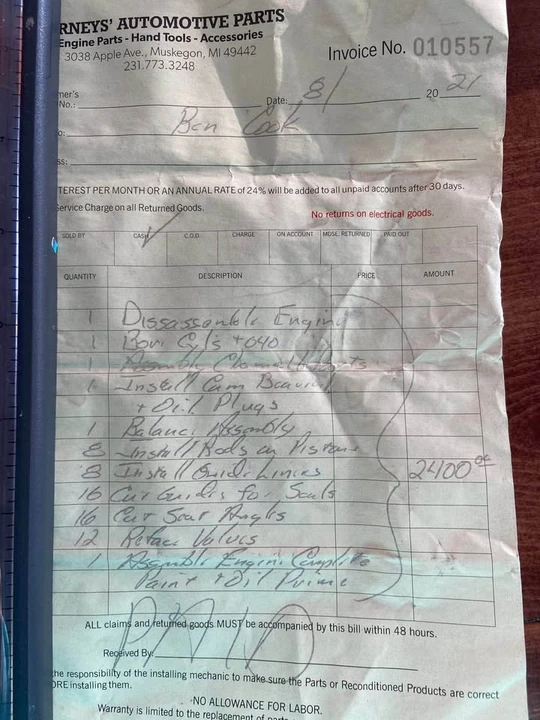 RNEYS' AUTOMOTIVE PARTS
Engine Parts - Hand Tools - Accessories
3038 Apple Ave., Muskegon, MI 49442
231.773.3248
Invoice No. 010557
mer's
No.: Date: 8/ 20 21
o: Ben Cook
ss:
TEREST PER MONTH OR AN ANNUAL RATE of 24% will be added to all unpaid accounts after 30 days.
Service Charge on all Returned Goods.
No returns on electrical goods.
SOLD BY CASH C.O.D CHARGE ON ACCOUNT MDSE. RETURNED PAID OUT
QUANTITY DESCRIPTION PRICE AMOUNT
1 Dissassemble Engine
1 Bore Cyl's +040
1 Assembly Clean all Parts
1 Install Cam Bearing
+ Oil Plugs
1 Balance Assembly
8 Install Rods on Pistons
8 Install Guide Liners 2400 00
16 Cut Guides for Seals
16 Cut Seat Angles
12 Reface Valves
1 Assemble Engine Complete
Paint + Oil Prime
ALL claims and returned goods MUST be accompanied by this bill within 48 hours.
PAID
Received By:
the responsibility of the installing mechanic to make sure the Parts or Reconditioned Products are correct
ORE installing them.
NO ALLOWANCE FOR LABOR.
Warranty is limited to the replacement of parts